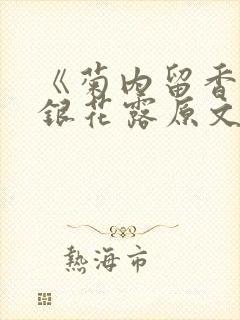 《菊内留香
銀花露原文
熱海市